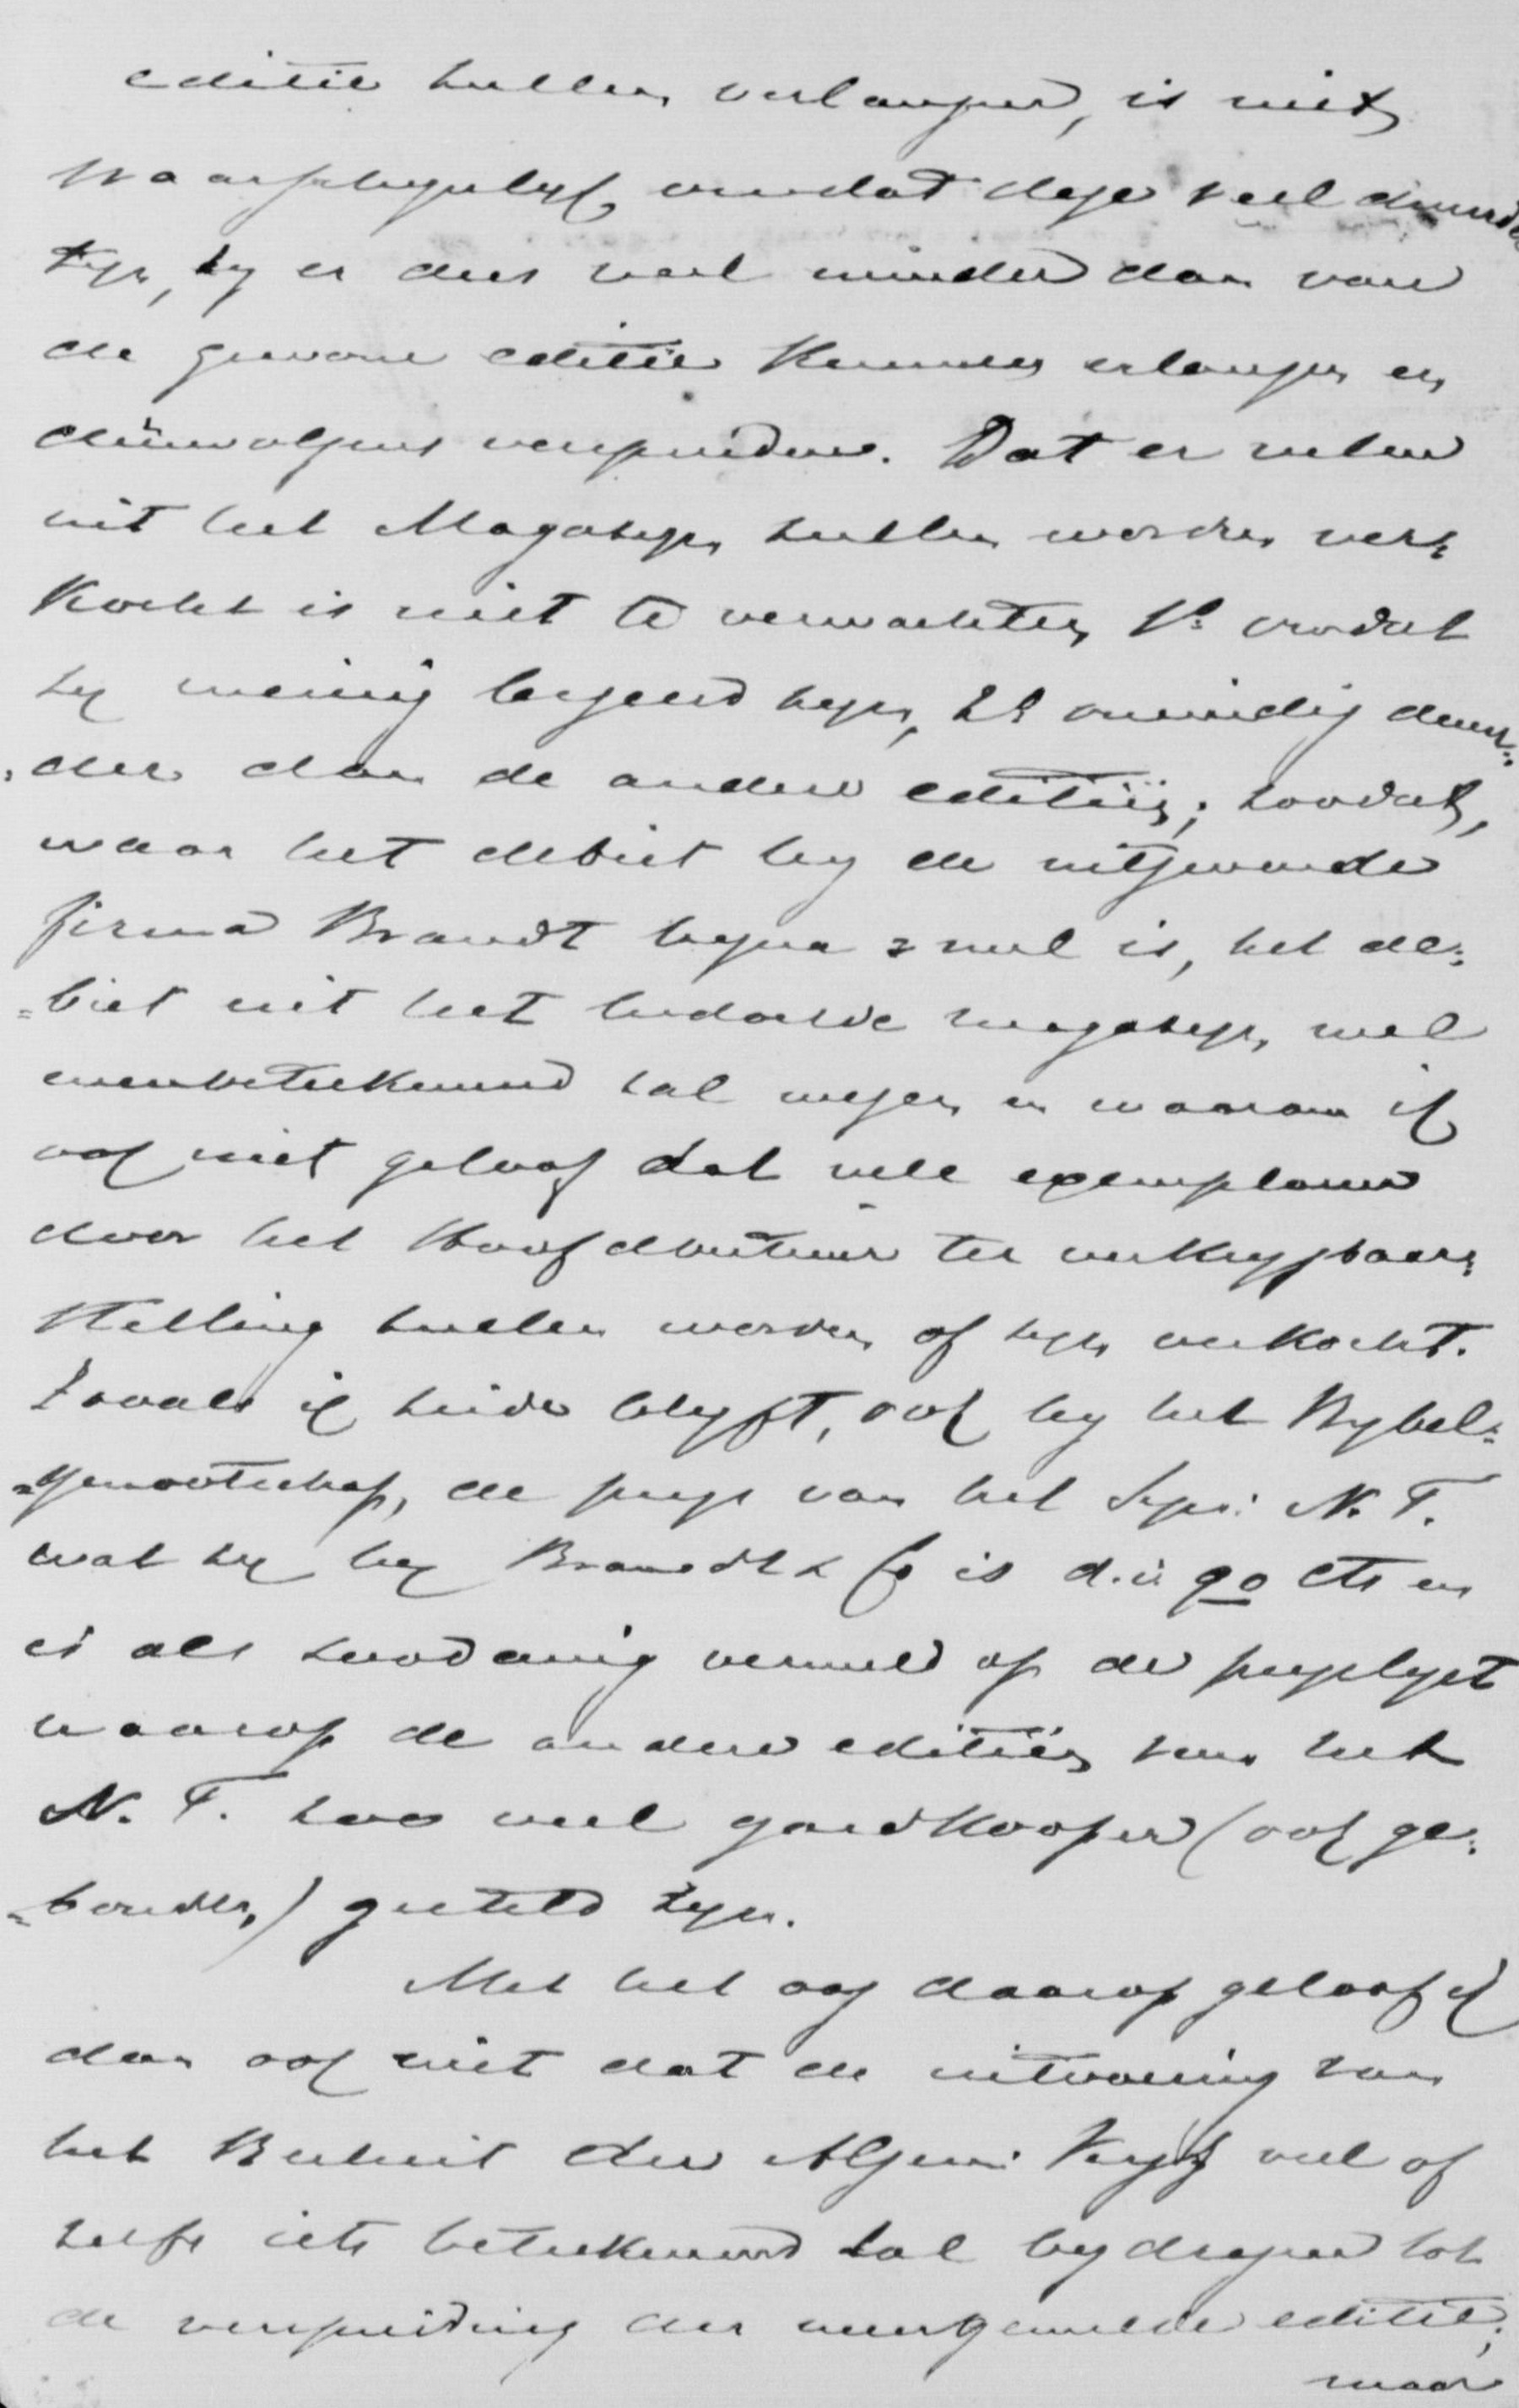 editie zullen verlangen, is niet
waarschynlyk, omdat deze veel duurder
zyn, zy er dus veel minder dan van
de gewone editie kunnen erlangen en
dienvolgens verspreiden. Dat er velen
uit het Magazyn zullen worden ver=
kocht is niet te verwachten 1º omdat
zy weinig begeerd zyn, 2º onnoodig duur=
der dan de andere editiën; zoodat,
waar het debiet by de uitgevende
firma Brandt byna nul is, het de=
=biet uit het bedoelde magazyn, wel
onbeteekenend zal wezen en waarom ik
ook niet geloof dat vele exemplaren
door het Hoofdbestuur ter verkrygbaar=
stelling zullen worden of zyn verkocht.
Zooals ik hierover blyft, ook by het Bybel=
=genootschap, de prys van het N. T.
wat zy by Brandt & Co is d.i. 90 cts en
is als zoodanig vermeld op de pryslyst
waarop de andere editiën van het
N. T. zoo veel goedkooper (ook ge=
=bonden) gesteld zyn.
Met het oog daarop geloof ik
dan ook niet dat de uitvoering van
het Besluit der Algem: veel of
zelfs iets beteekenend zal bydragen tot
de verspreiding der meergemelde editie;
maar